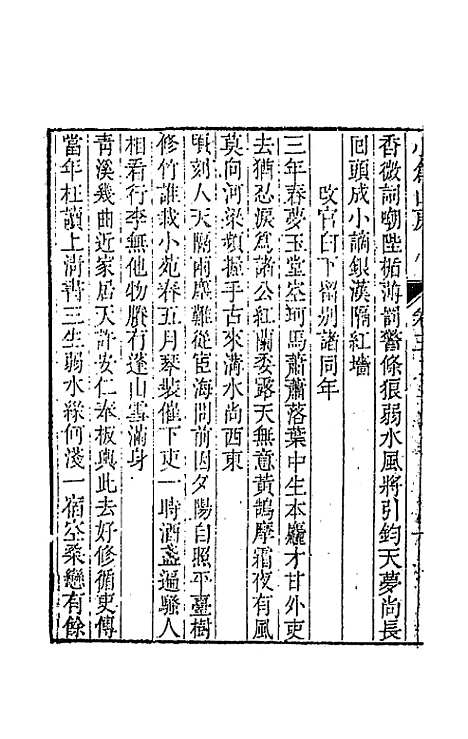 香微詞嘲陛楯薄罰警條狼弱水風將引鈞天夢尚長
回頭成小謫銀漢隔紅墻
改官白下留別諸同年
三年春夢玉堂空珂馬蕭蕭落葉中生本麤才甘外吏
去猶忍淚爲諸公紅蘭委露天無意黃鵠摩霜夜有風
莫向河梁頻握手古來溝水尚西東
頃刻人天隔兩塵難從宦海問前因夕陽自照平臺樹
修竹誰栽小苑春五月琴裝催下吏一時酒盞遍騷人
相看行李無他物賸有蓬山雪滿身
靑溪幾曲近家居天許安仁奉板輿此去好修循吏傳
當年枉讀上淸書三生弱水緣何淺一宿空桑戀有餘